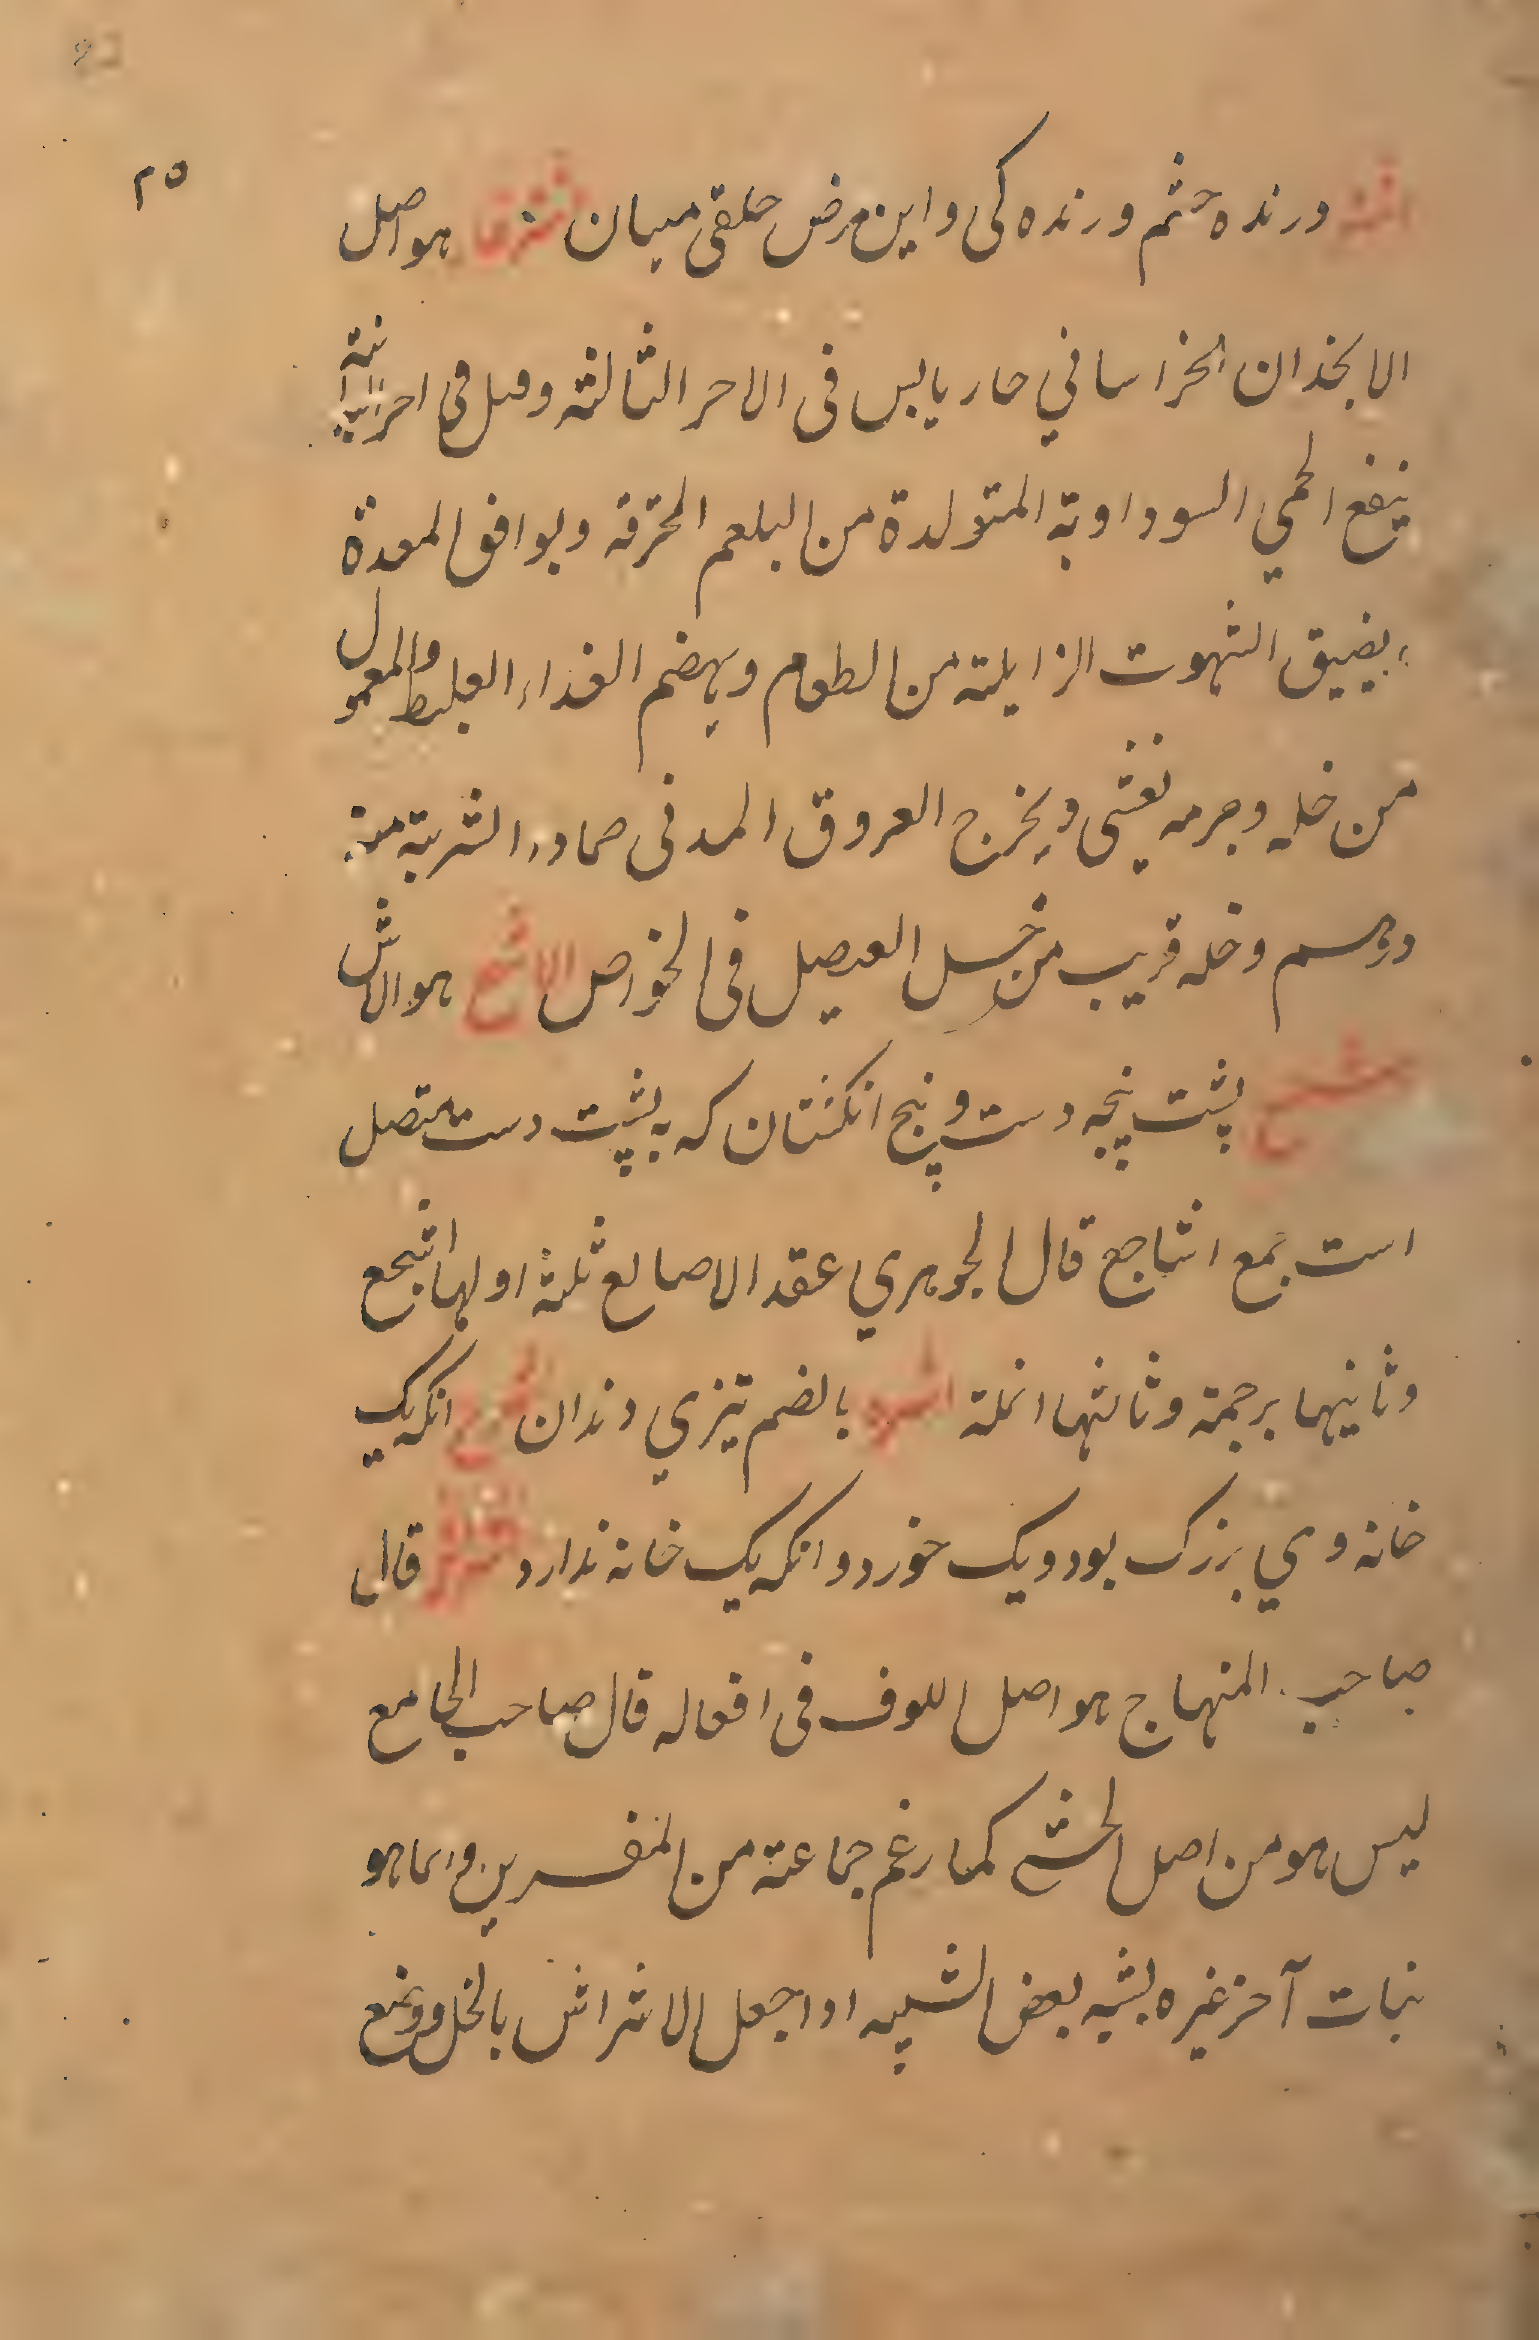 ۲۵
درنده چشم ورنده کی واین مرض حلقی میان هو اصل
الانجذان الخراسانی حار یابس فی الاحر الثالثة وقیل فی احر الثانیة
ینفع الحمی السوداویة المتولدة من البلغم المحترقه ویوافق المعدة
یضیق الشهوت الزایلته من الطعام ویهضم الغذاء الغلیظ والمعمول
من خله وجرمه یغثی ویخرج العروق المدنی ضمادا الشربته منه
درهم وخله قریب من خل العنصل فی الخواص الاشج هو الاشق
پشت پنجه دست وپنج انکشتان که به پشت دست متصل
است جمع اشاجع قال الجوهری عقد الاصابع ثلثة اولها اشجع
وثانیها برجمة وثالثها انملة بالضم تیزی دندان انکه یک
خانه وی بزرک بود ویک خورد و انکه یک خانه ندارد قال
صاحب المنهاج هو اصل اللوف فی افعاله قال صاحب الجامع
لیس هو من اصل الخنثی کما زعم جماعته من المفسرین وانما هو
نبات آخر غیره یشبه بعض الشبه اذا جعل الاشراش بالخل